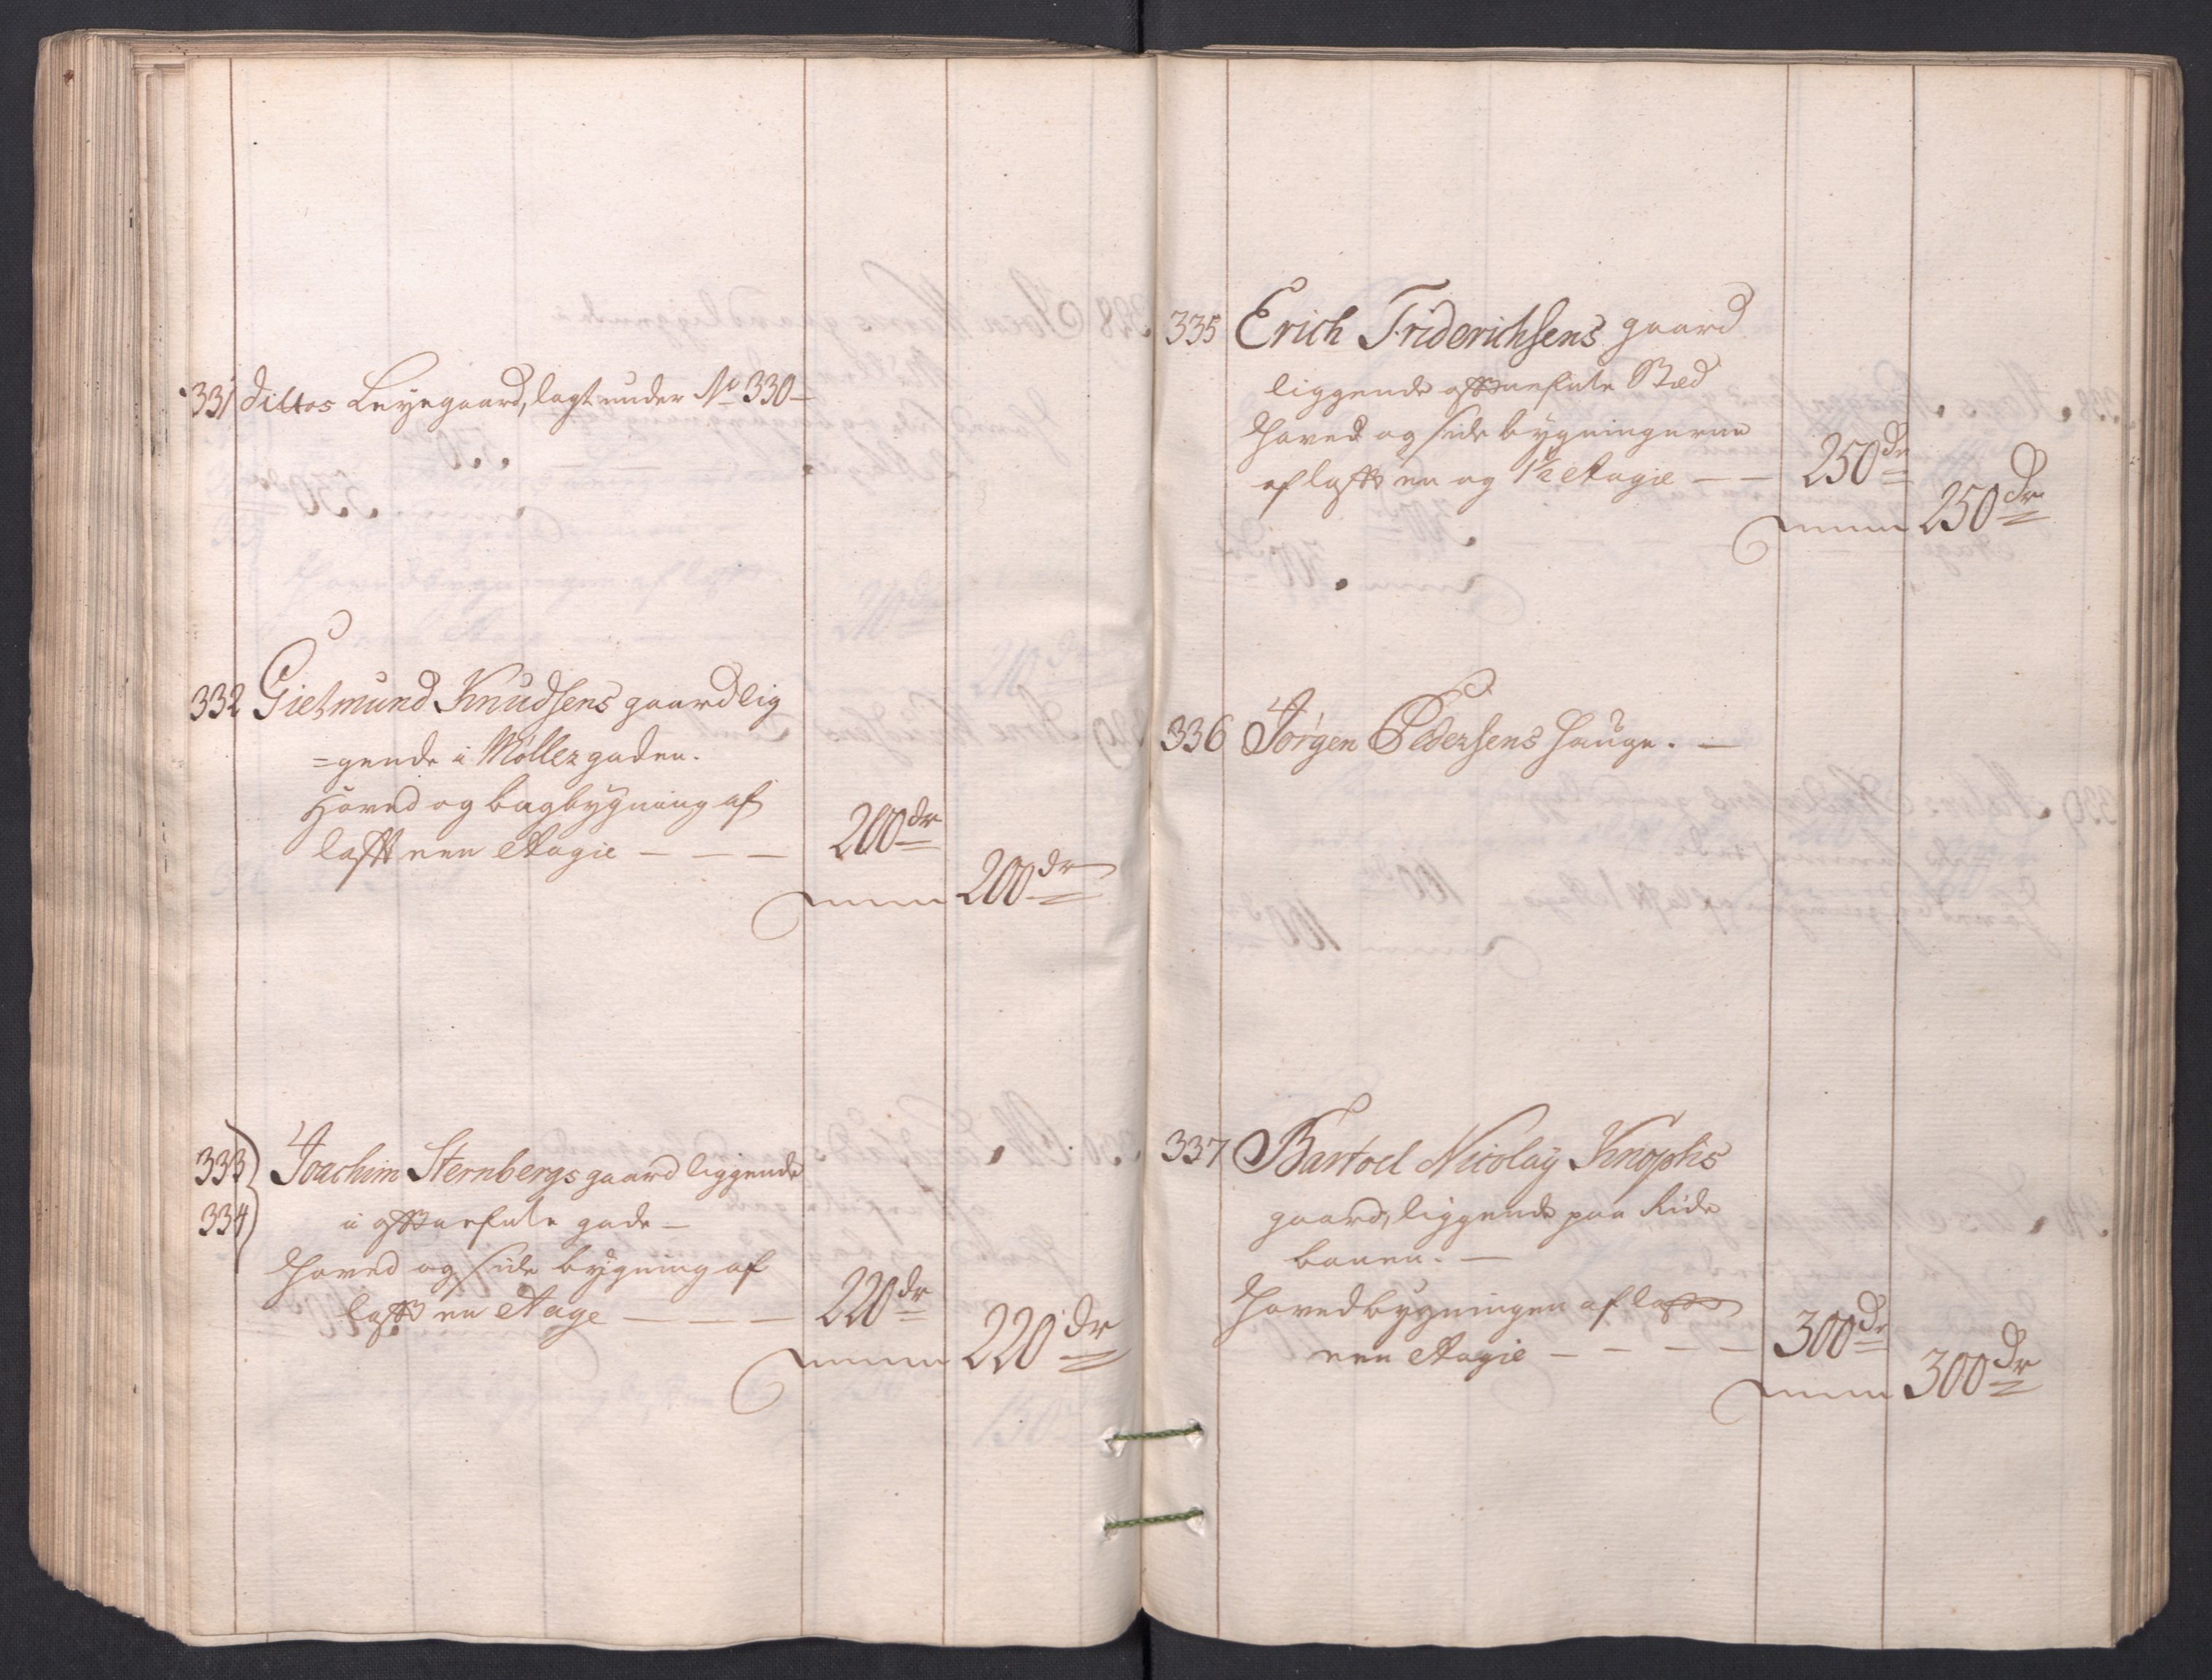 331 dittos Leyegaard, lagt under No 330 –
332 Gietmund Knudsens gaard lig
=gende i Møller gaden.
Hoved og bagbygning af
lafft een Etagie – – – 200 dr
Summa 200 dr
333) Joachim Sternbergs gaard liggende
334) i afftnefnte gade –
Hoved og side bygning af
lafft en Etage – – – 220 dr
Summa 220 dr
335 Erich Friderichsens gaard
liggende Stæd
Hoved og side bygningerne
af lafft en og 1½ Etagie – – 250 dr
Summa 250 dr
336 Jørgen Pedersens Hauge. –
337 Bartoel Nicolaÿ Knophs
gaard, liggende paa Ride
banen. –
Hovedbygningen af lafft
een Etagie – – – – 300 dr
Summa 300 dr